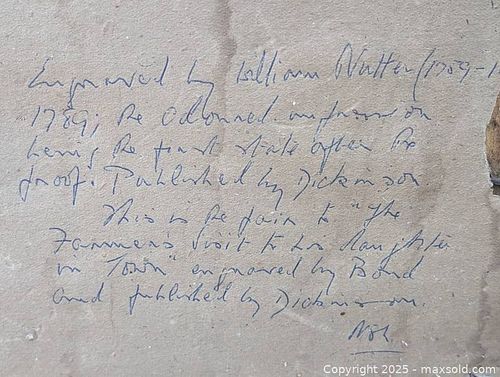 Engraved by William Nutter (1759-1
1789; the coloured impression
being the first state after the
proof. Published by Dickinson.
This is the pair to "The
Farmer's Visit to his daughter
in Town" engraved by Bond
and published by Dickinson.
Copyright © 2025 - maxsold.com